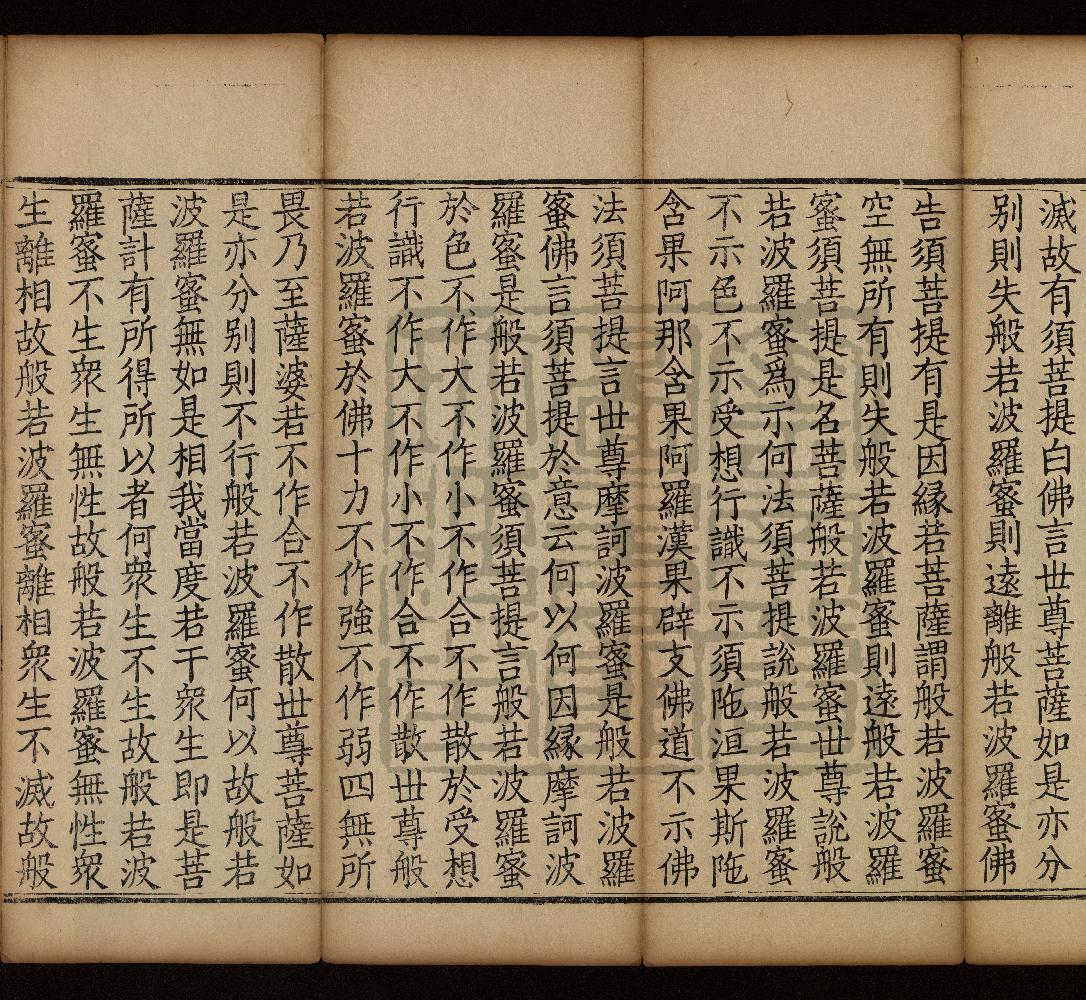 滅故有須菩提白佛言世尊菩薩如是亦分
别則失般若波羅蜜則遠離般若波羅蜜佛
告須菩提有是因縁若菩薩謂般若波羅蜜
空無所有則失般若波羅蜜則遠般若波羅
蜜須菩提是名菩薩般若波羅蜜世尊說般
若波羅蜜爲示何法須菩提說般若波羅蜜
不示色不示受想行識不示須陁洹果斯陁
含果阿那含果阿羅漢果辟支佛道不示佛
法須菩提言世尊摩訶波羅蜜是般若波羅
蜜佛言須菩提於意云何以何因縁摩訶波
羅蜜是般若波羅蜜須菩提言般若波羅蜜
於色不作大不作小不作合不作散於受想
行識不作大不作小不作合不作散世尊般
若波羅蜜於佛十力不作強不作弱四無所
畏乃至薩婆若不作合不作散世尊菩薩如
是亦分别則不行般若波羅蜜何以故般若
波羅蜜無如是相我當度若干衆生即是菩
薩計有所得所以者何衆生不生故般若波
羅蜜不生衆生無性故般若波羅蜜無性衆
生離相故般若波羅蜜離相衆生不滅故般